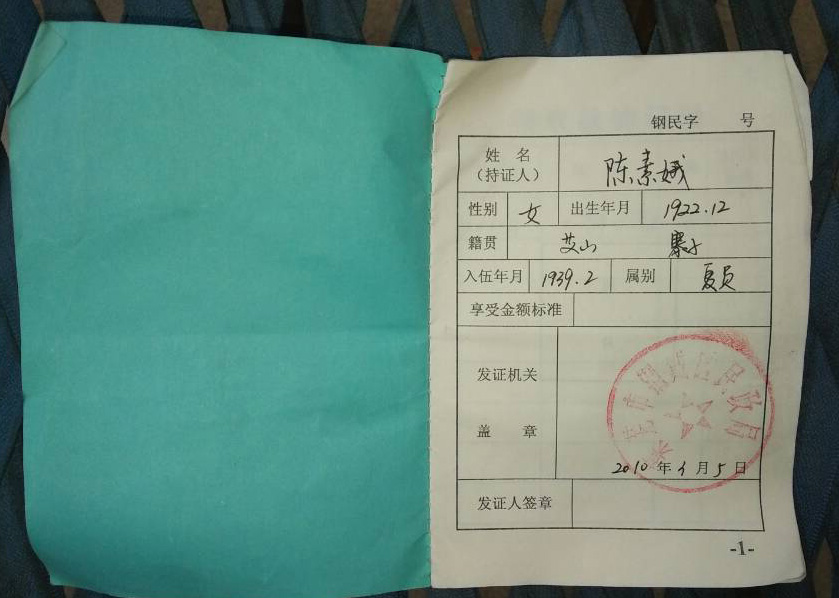 钢民字 号
姓名
(持证人) 陈素娥
性别 女 出生年月 1922.12
籍贯 艾山 寨子
入伍年月 1939.2 属别 复员
享受金额标准
发证机关
盖 章
市钢城区民政局
2010年 月5日
发证人签章
-1-